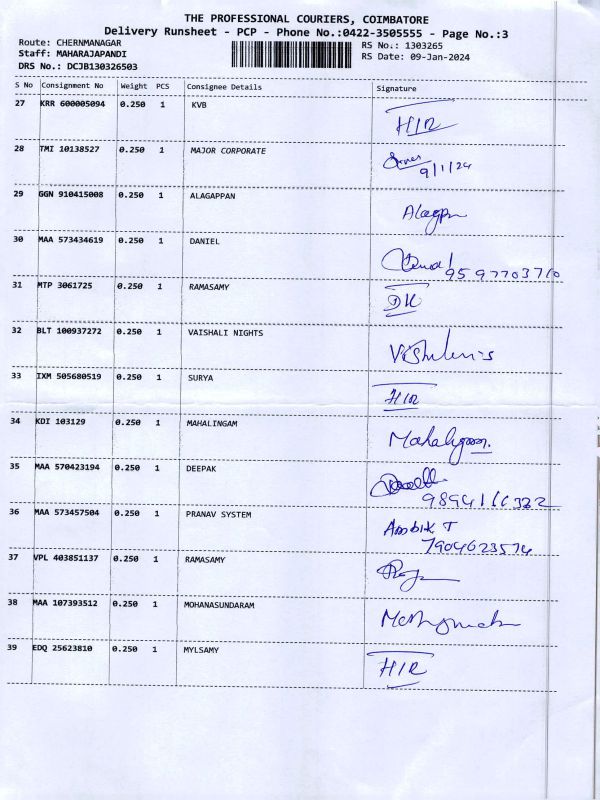 THE PROFESSIONAL COURIERS, COIMBATORE
Delivery Runsheet - PCP - Phone No.:0422-3505555 - Page No.:3
Route: CHERNMANAGAR
Staff: MAHARAJAPANDI
DRS No.: DCJB130326503
RS No.: 1303265
RS Date: 09-Jan-2024
S No Consignment No Weight PCS Consignee Details Signature
27 KRR 600005094 0.250 1 KVB H/R
28 TMI 10138527 0.250 1 MAJOR CORPORATE
9/1/24
29 GGN 910415008 0.250 1 ALAGAPPAN Alagp
30 MAA 573434619 0.250 1 DANIEL
9597703710
31 MTP 3061725 0.250 1 RAMASAMY DK
32 BLT 100937272 0.250 1 VAISHALI NIGHTS
33 IXM 505680519 0.250 1 SURYA H/R
34 KDI 103129 0.250 1 MAHALINGAM Mahalingam.
35 MAA 570423194 0.250 1 DEEPAK
9894116322
36 MAA 573457504 0.250 1 PRANAV SYSTEM Ambik T
7904623574
37 VPL 403851137 0.250 1 RAMASAMY
38 MAA 107393512 0.250 1 MOHANASUNDARAM
39 EDQ 25623810 0.250 1 MYLSAMY H/R